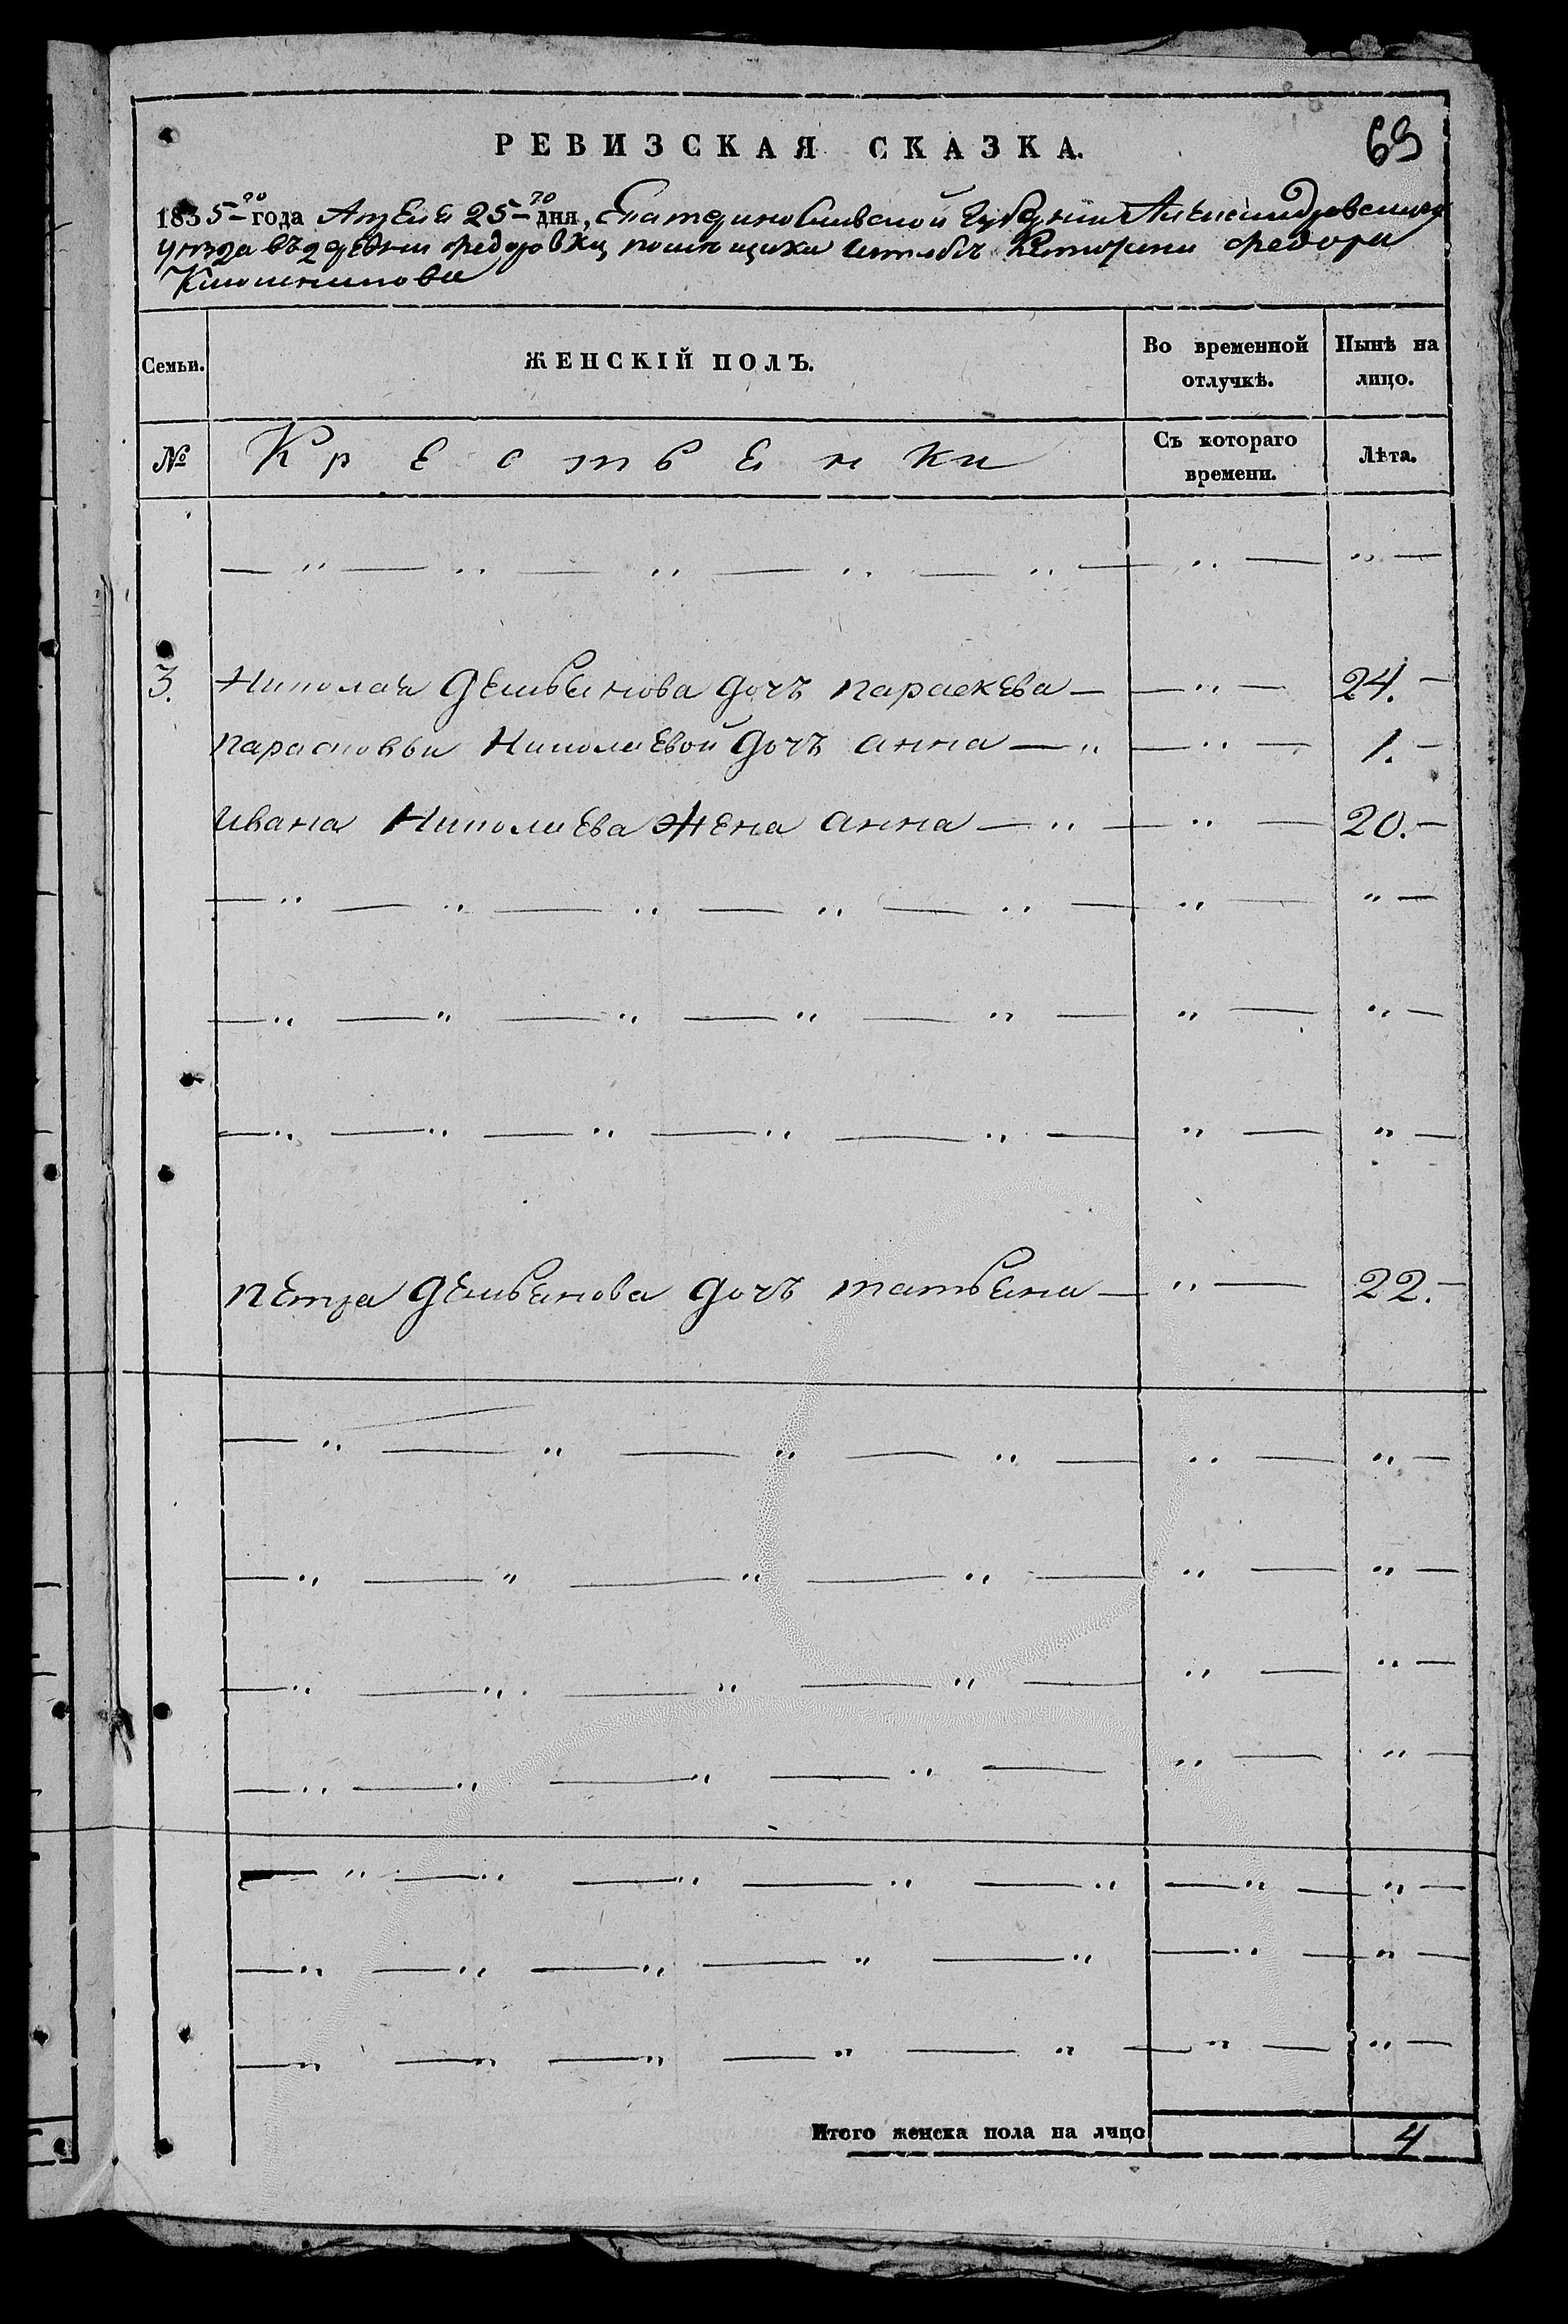 69
РЕВИЗСКАЯ СКАЗКА.
1835го года Апреля 25го дня, Екатеринославской Губернии Александровскаго
уезда въ деревни Федоровки помещика штабъ Ротмистра Федора
Семьи. ЖЕНСКІЙ ПОЛЪ. Во временной отлучкѣ. Нынѣ на лицо.
№ Крестьенки Съ котораго времени. Лѣта.
— " — " — " — " — " — " — " —
3. Николая Демьянова дочъ параскева — — " — 24. —
парасковьи Николаевой дочъ анна — " — " — 1. —
ивана Николаева жена анна — " — " — 20. —
— " — " — " — " — " — " — " —
— " — " — " — " — " — " — " —
— " — " — " — " — " — " — " —
петра демьянова дочъ татьена — " — 22. —
— " — " — " — " — " — " —
— " — " — " — " — " — " —
— " — " — " — " — " — " —
— " — " — " — " — " — " —
— " — " — " — " — " — " — " —
— " — " — " — " — " — " — " —
— " — " — " — " — " — " — " —
Итого женска пола на лицо 4